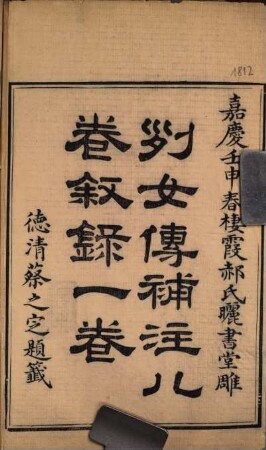 1812
嘉慶壬申春棲霞郝氏曬書堂雕
列女傳補注八
卷敘錄一卷
德清蔡之定題籤